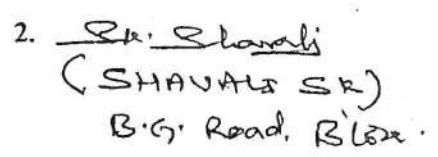 2. Sk. Shavali
(SHAVALI SK)
B.G. Road, B'lore.